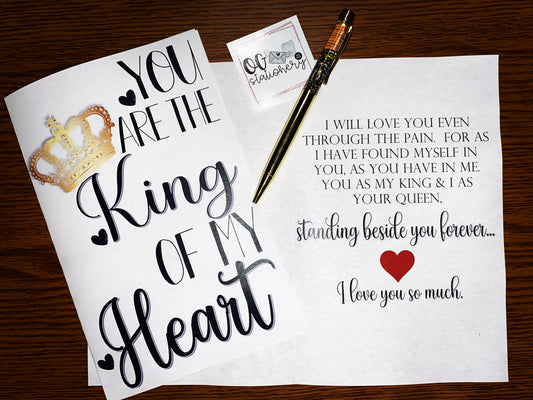 YOU
ARE THE
King
OF MY
Heart
OC
stationery
I WILL LOVE YOU EVEN
THROUGH THE PAIN. FOR AS
I HAVE FOUND MYSELF IN
YOU, AS YOU HAVE IN ME.
YOU AS MY KING & I AS
YOUR QUEEN,
standing beside you forever...
I love you so much.